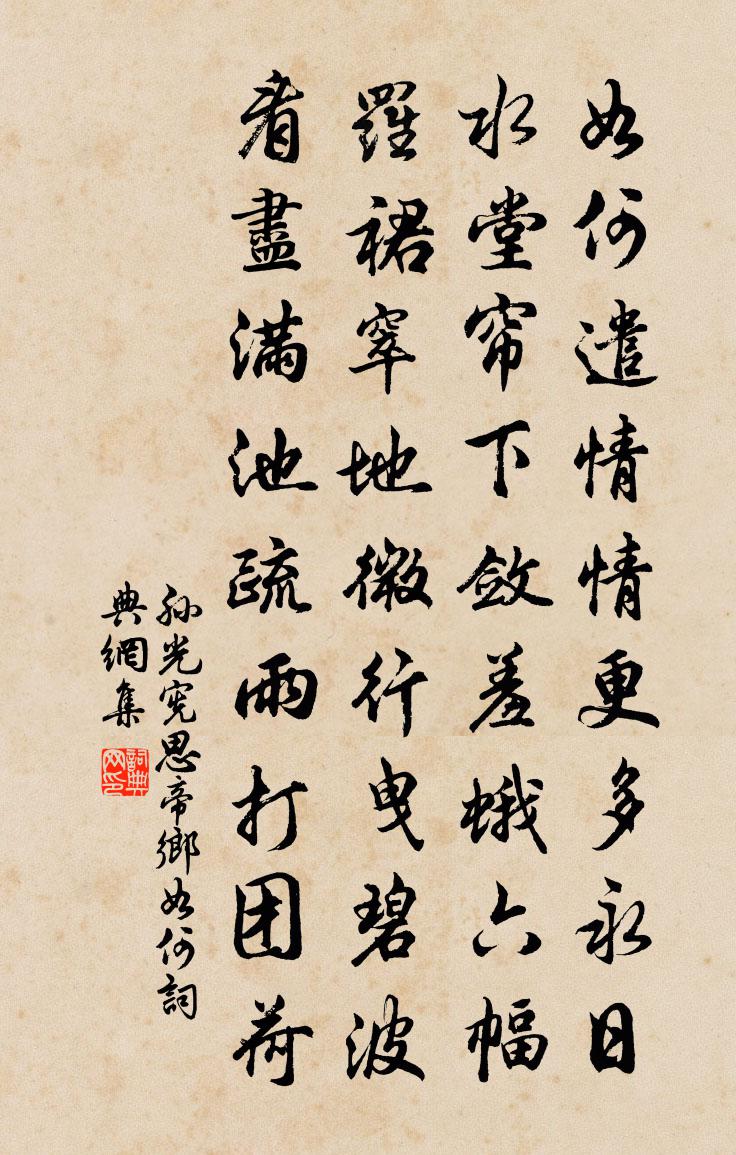 如何遣情情更多永日
水堂帘下斂羞蛾六幅
羅裙窣地微行曳碧波
看盡滿池疏雨打团荷
孙光宪思帝鄉如何詞
典網集
詞典网印